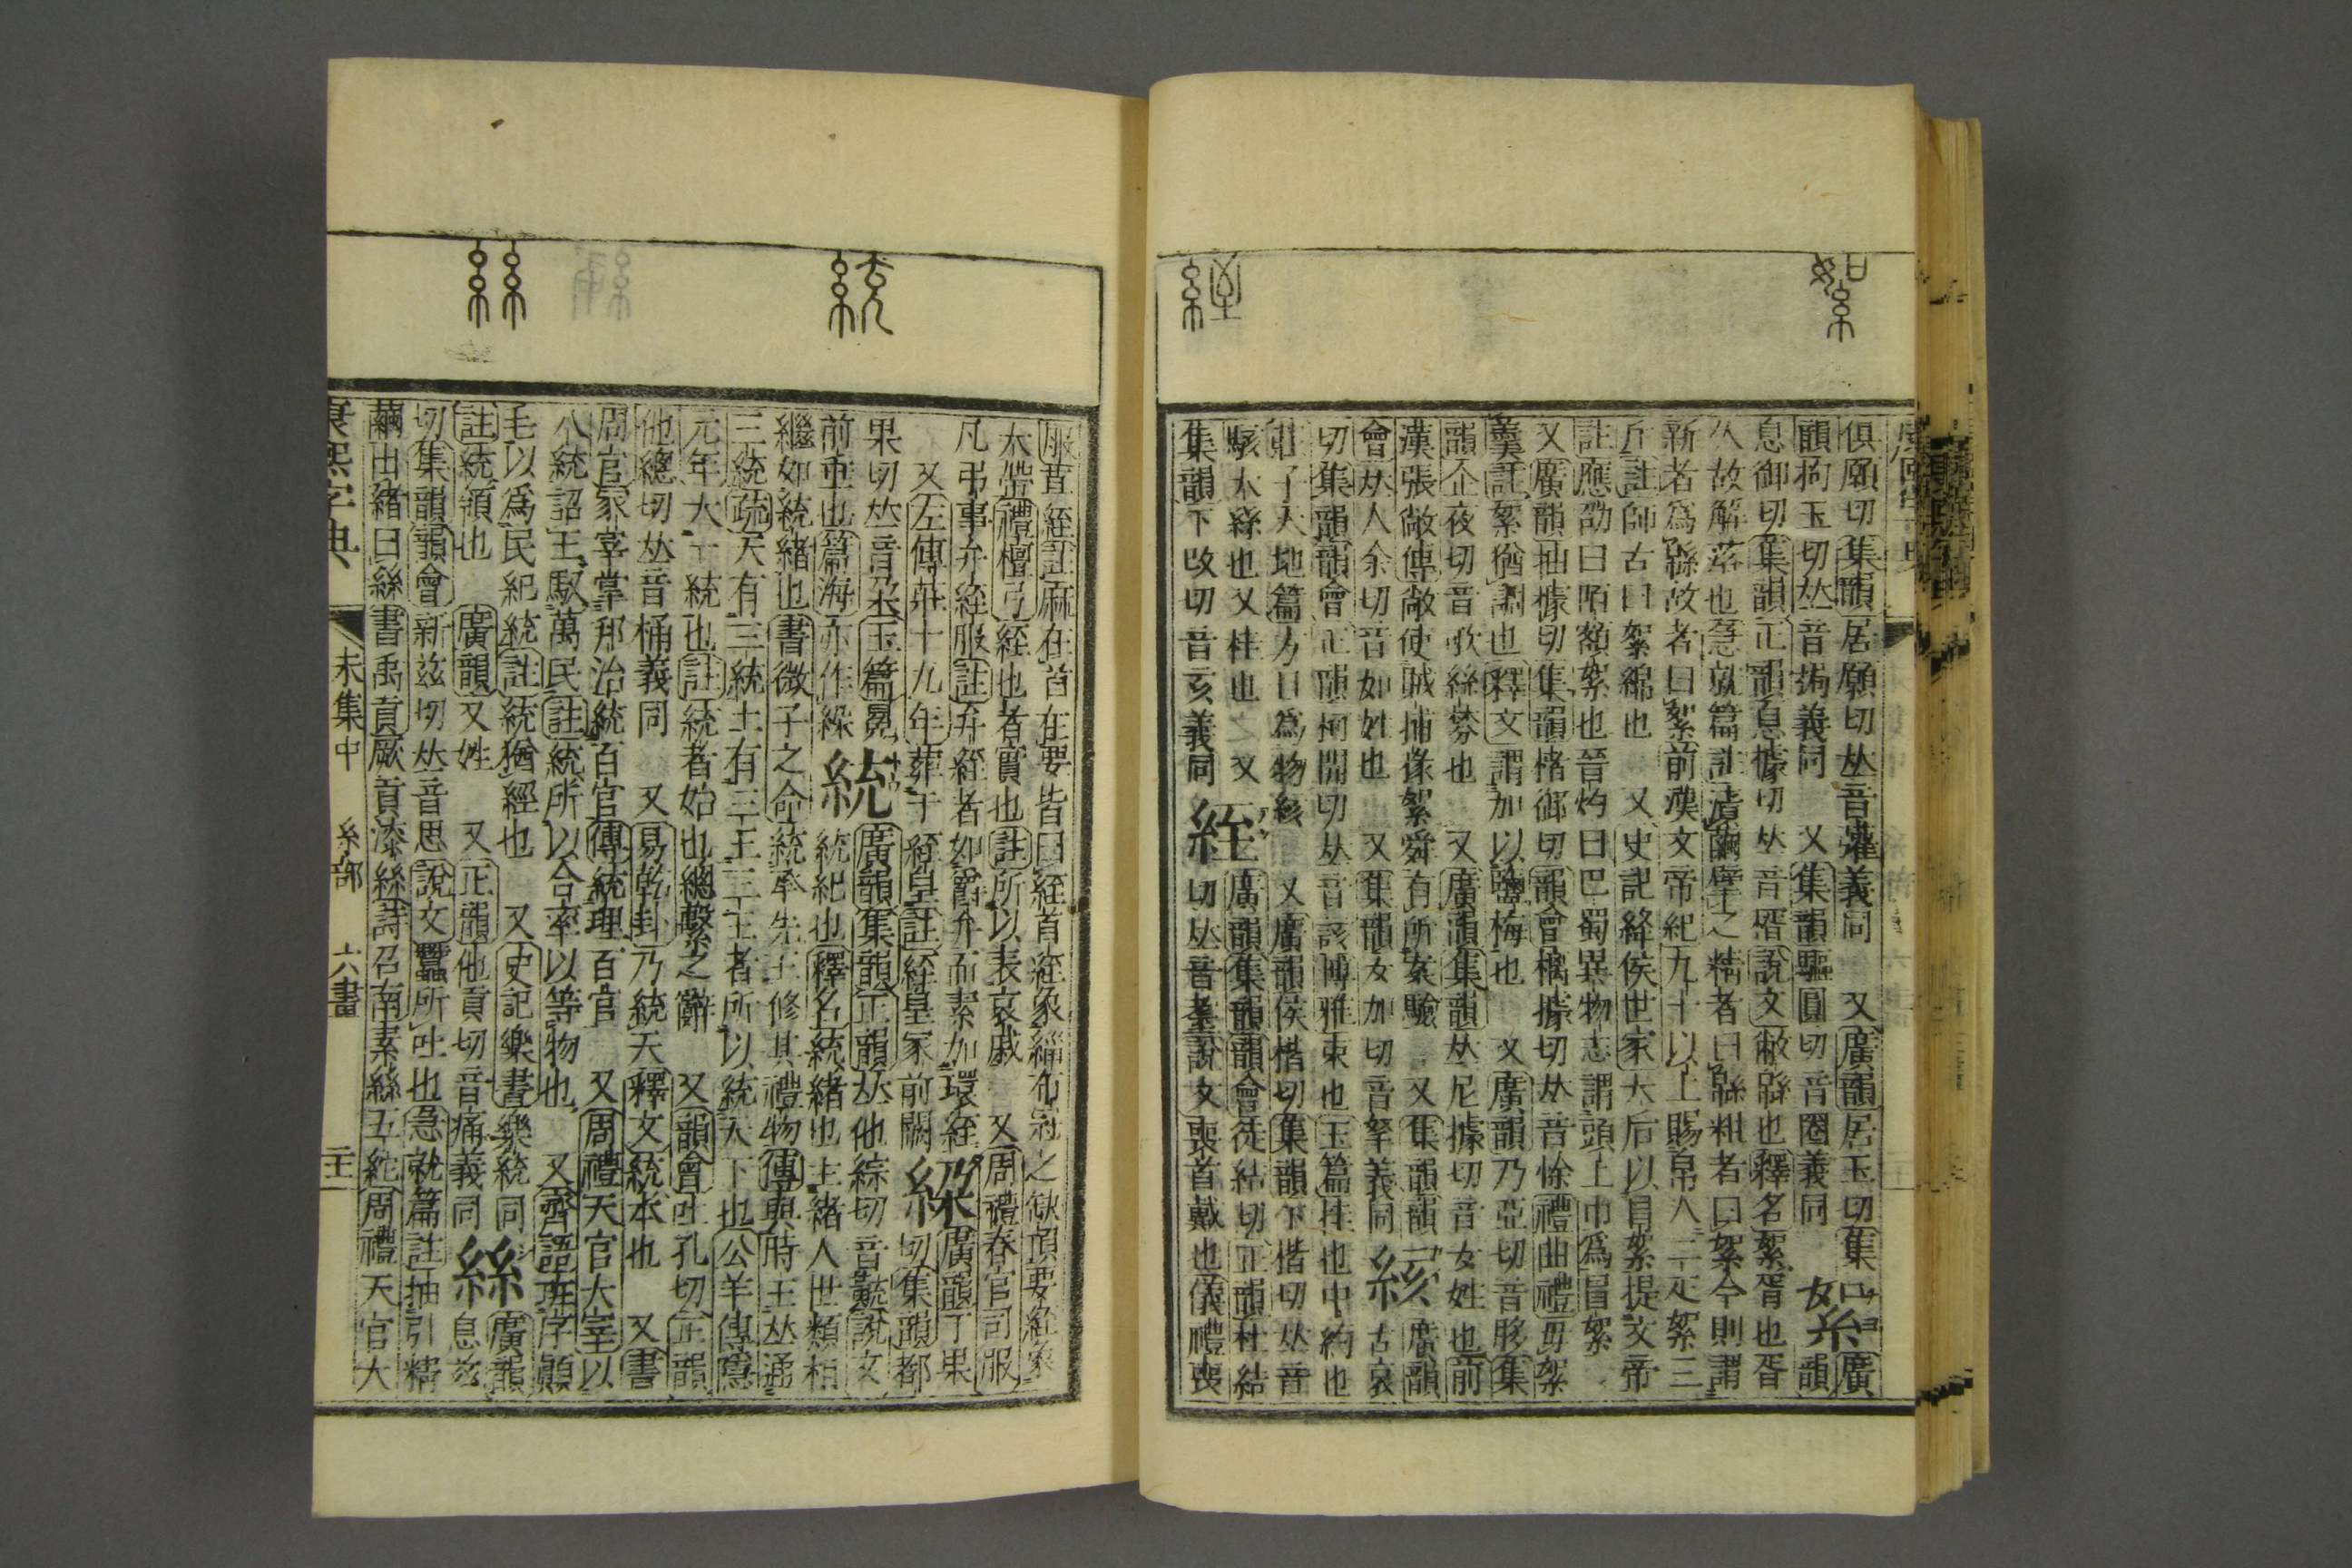 絮
絰
俱願切集韻居願切𠀤音䊎義同 又廣韻居玉切集
韻拘玉切𠀤音挶義同 又集韻驅圓切音圈義同 絮 廣韻
息御切集韻正韻息據切𠀤音㥠說文敝緜也釋名絮胥也胥
久故解落也急就篇註漬繭擘之精者曰緜粗者曰絮今則謂
新者爲緜故者曰絮前漢文帝紀九十以上賜帛人二疋絮三
斤註師古曰絮綿也 又史記絳侯世家太后以冒絮提文帝
註應劭曰陌額絮也晉灼曰巴蜀異物志謂頭上巾爲冒絮
又廣韻抽據切集韻楮御切韻會摛據切𠀤音悇禮曲禮毋絮
羹註絮猶調也釋文謂加以鹽梅也 又廣韻乃亞切音䏧集
韻企夜切音歌絲棼也 又廣韻集韻𠀤尼據切音女姓也前
漢張敞傳敞使賊捕掾絮舜有所案驗 又集韻韻
會𠀤人余切音如姓也 又集韻女加切音拏義同 絯 廣韻古哀
切集韻韻會正韻柯開切𠀤音該博雅束也玉篇挂也中約也
莊子天地篇方且爲物絯 又廣韻侯楷切集韻下楷切𠀤音
駭大絲也又挂也 又
集韻下改切音亥義同 絰 廣韻集韻韻會徒結切正韻杜結
切𠀤音耋說文喪首戴也儀禮喪
統
絲
服苴絰註麻在首在要皆曰絰首絰象緇布冠之缺項要絰象
大帶禮檀弓絰也者實也註所以表哀戚 又周禮春官司服
凡弔事弁絰服註弁絰者如爵弁而素加環絰
又左傳莊十九年葬于絰皇註絰皇冢前闕 綵 廣韻丁果
切集韻都
果切𠀤音朶玉篇冕
前垂也篇海亦作綵 統 廣韻集韻正韻𠀤他綜切音𧫕說文
統紀也釋名統緒也主緒人世類相
繼如統緒也書微子之命統承先王修其禮物傳與時王𠀤通
三統疏天有三統土有三王三王者所以統天下也公羊傳隱
元年大一統也註統者始也總繫之辭 又韻會吐孔切正韻
他總切𠀤音桶義同 又易乾卦乃統天釋文統本也 又書
周官冢宰掌邦治統百官傳統理百官 又周禮天官大宰以
八統詔王馭萬民註統所以合率以等物也 又齊語班序顚
毛以爲民紀統註統猶經也 又史記樂書樂統同
註統領也 廣韻又姓 又正韻他貢切音痛義同 絲 廣韻
息兹
切集韻韻會新兹切𠀤音思說文蠶所吐也急就篇註抽引精
繭出緒曰絲書禹貢厥貢漆絲詩召南素絲五紽周禮天官大
康熙字典 未集中 糸部 六畫 二十一